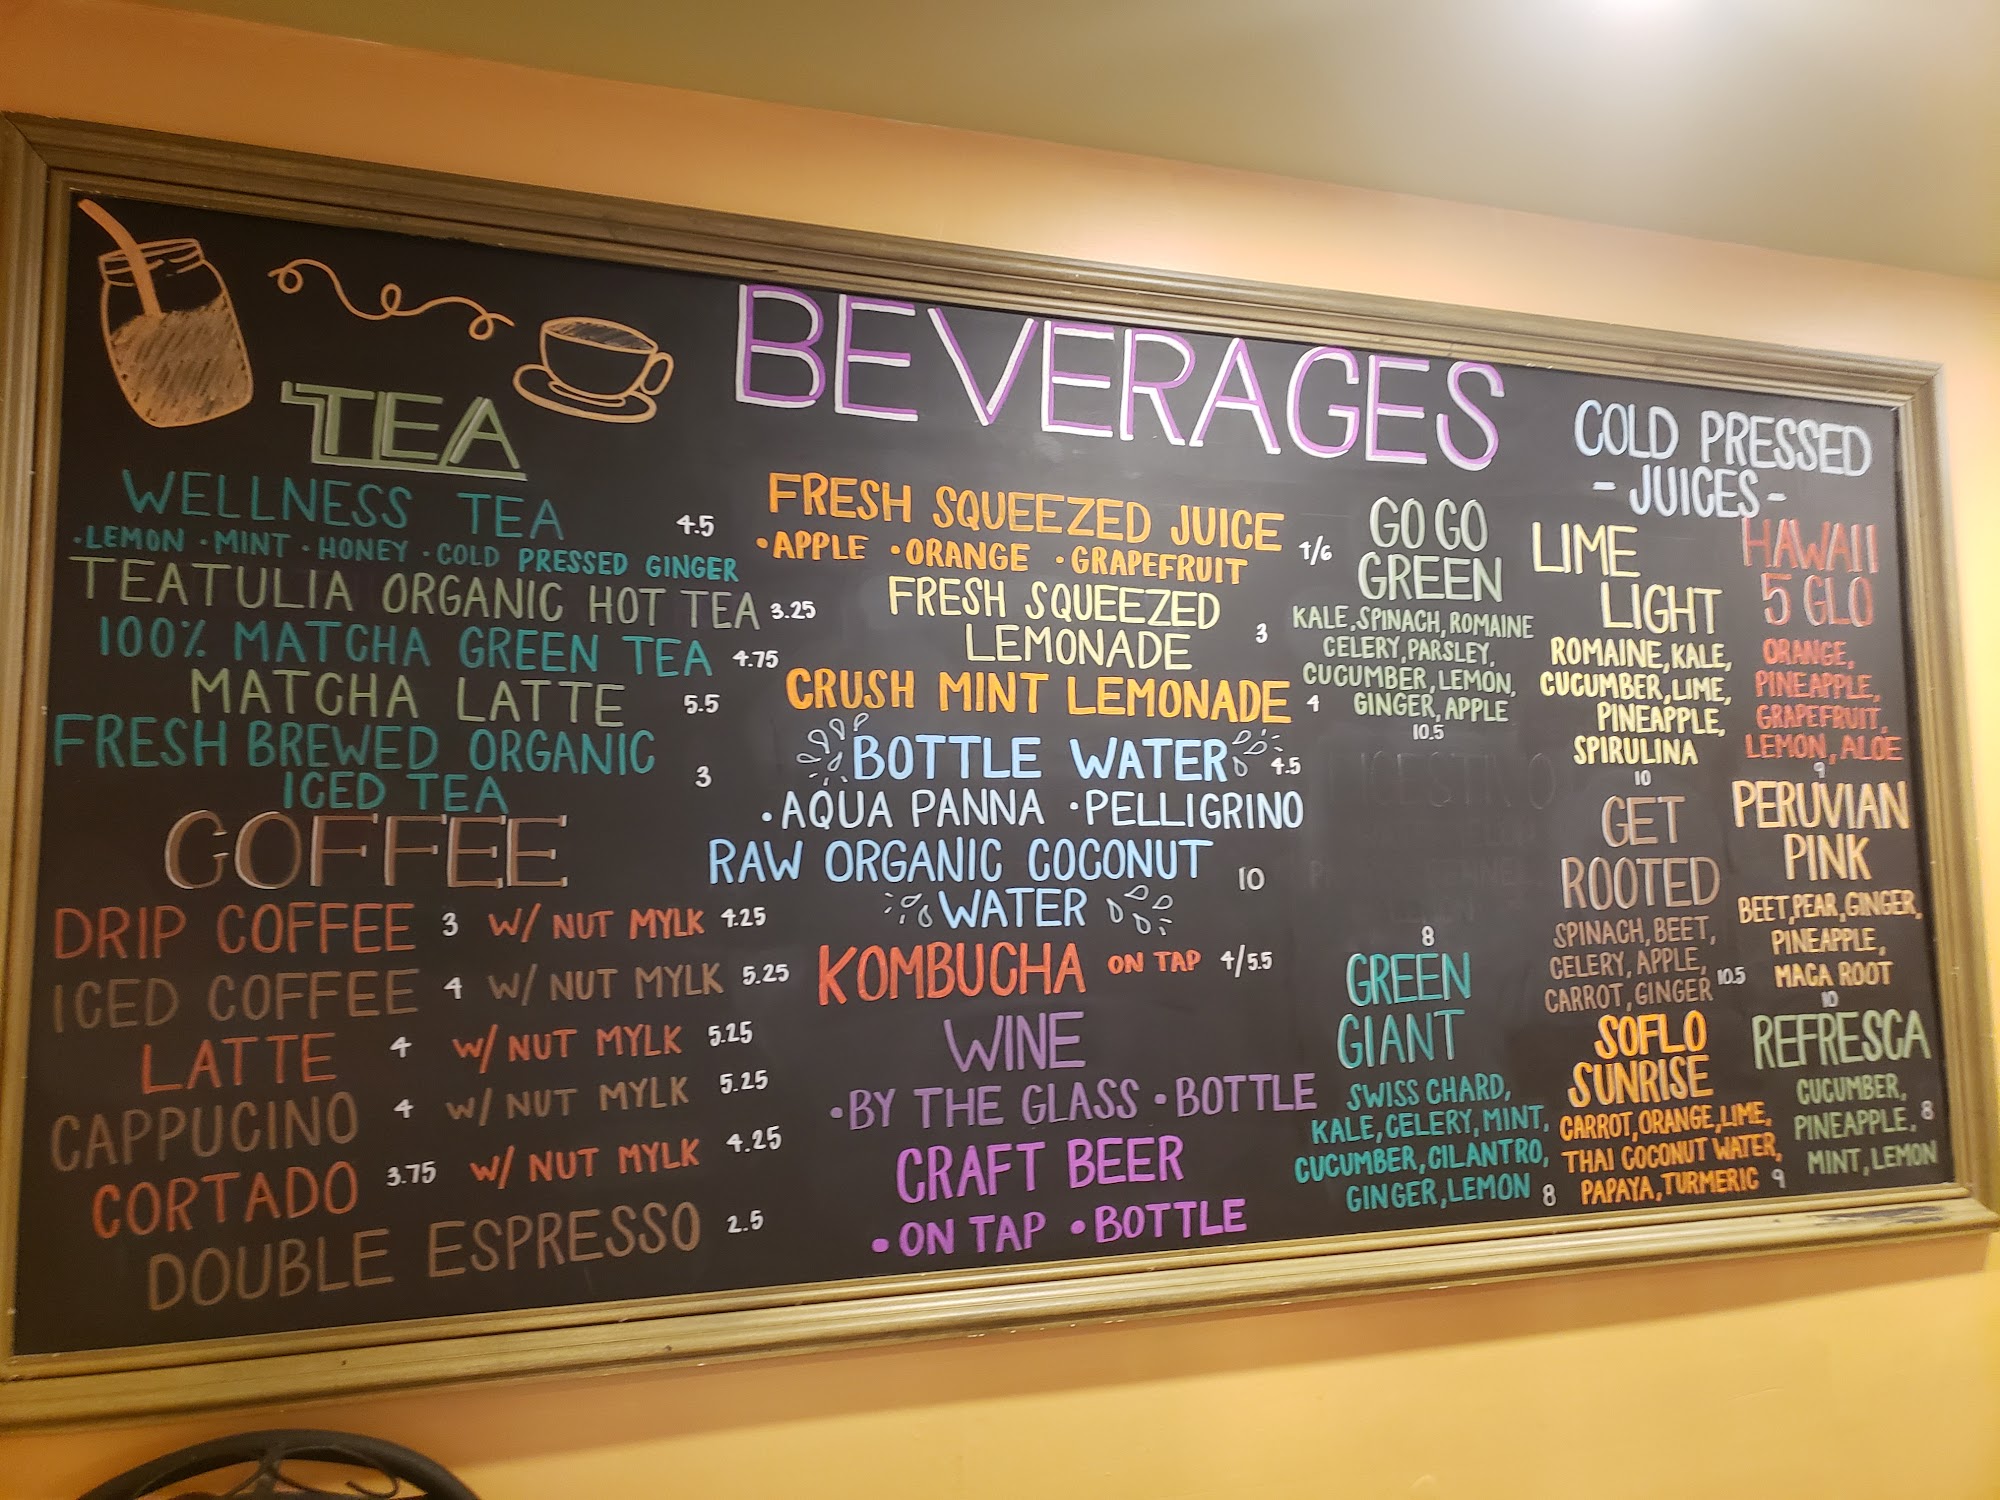 BEVERAGES
TEA
WELLNESS TEA 4.5
·LEMON ·MINT ·HONEY ·COLD PRESSED GINGER
TEATULIA ORGANIC HOT TEA 3.25
100% MATCHA GREEN TEA 4.75
MATCHA LATTE 5.5
FRESH BREWED ORGANIC
ICED TEA 3
COFFEE
DRIP COFFEE 3 W/ NUT MYLK 4.25
ICED COFFEE 4 W/ NUT MYLK 5.25
LATTE 4 W/ NUT MYLK 5.25
CAPPUCINO 4 W/ NUT MYLK 5.25
CORTADO 3.75 W/ NUT MYLK 4.25
DOUBLE ESPRESSO 2.5
FRESH SQUEEZED JUICE
·APPLE ·ORANGE ·GRAPEFRUIT 4/6
FRESH SQUEEZED
LEMONADE 3
CRUSH MINT LEMONADE 4
BOTTLE WATER 4.5
·AQUA PANNA ·PELLIGRINO
RAW ORGANIC COCONUT
WATER 10
KOMBUCHA ON TAP 4/5.5
WINE
·BY THE GLASS ·BOTTLE
CRAFT BEER
·ON TAP ·BOTTLE
COLD PRESSED
- JUICES -
GO GO
GREEN
KALE, SPINACH, ROMAINE
CELERY, PARSLEY,
CUCUMBER, LEMON,
GINGER, APPLE
10.5
8
GREEN
GIANT
SWISS CHARD,
KALE, CELERY, MINT,
CUCUMBER, CILANTRO,
GINGER, LEMON 8
LIME
LIGHT
ROMAINE, KALE,
CUCUMBER, LIME,
PINEAPPLE,
SPIRULINA
10
GET
ROOTED
SPINACH, BEET,
CELERY, APPLE,
CARROT, GINGER 10.5
SOFLO
SUNRISE
CARROT, ORANGE, LIME,
THAI COCONUT WATER,
PAPAYA, TURMERIC 9
HAWAII
5 GLO
ORANGE,
PINEAPPLE,
GRAPEFRUIT,
LEMON, ALOE
9
PERUVIAN
PINK
BEET, PEAR, GINGER,
PINEAPPLE,
MACA ROOT
10
REFRESCA
CUCUMBER,
PINEAPPLE, 8
MINT, LEMON